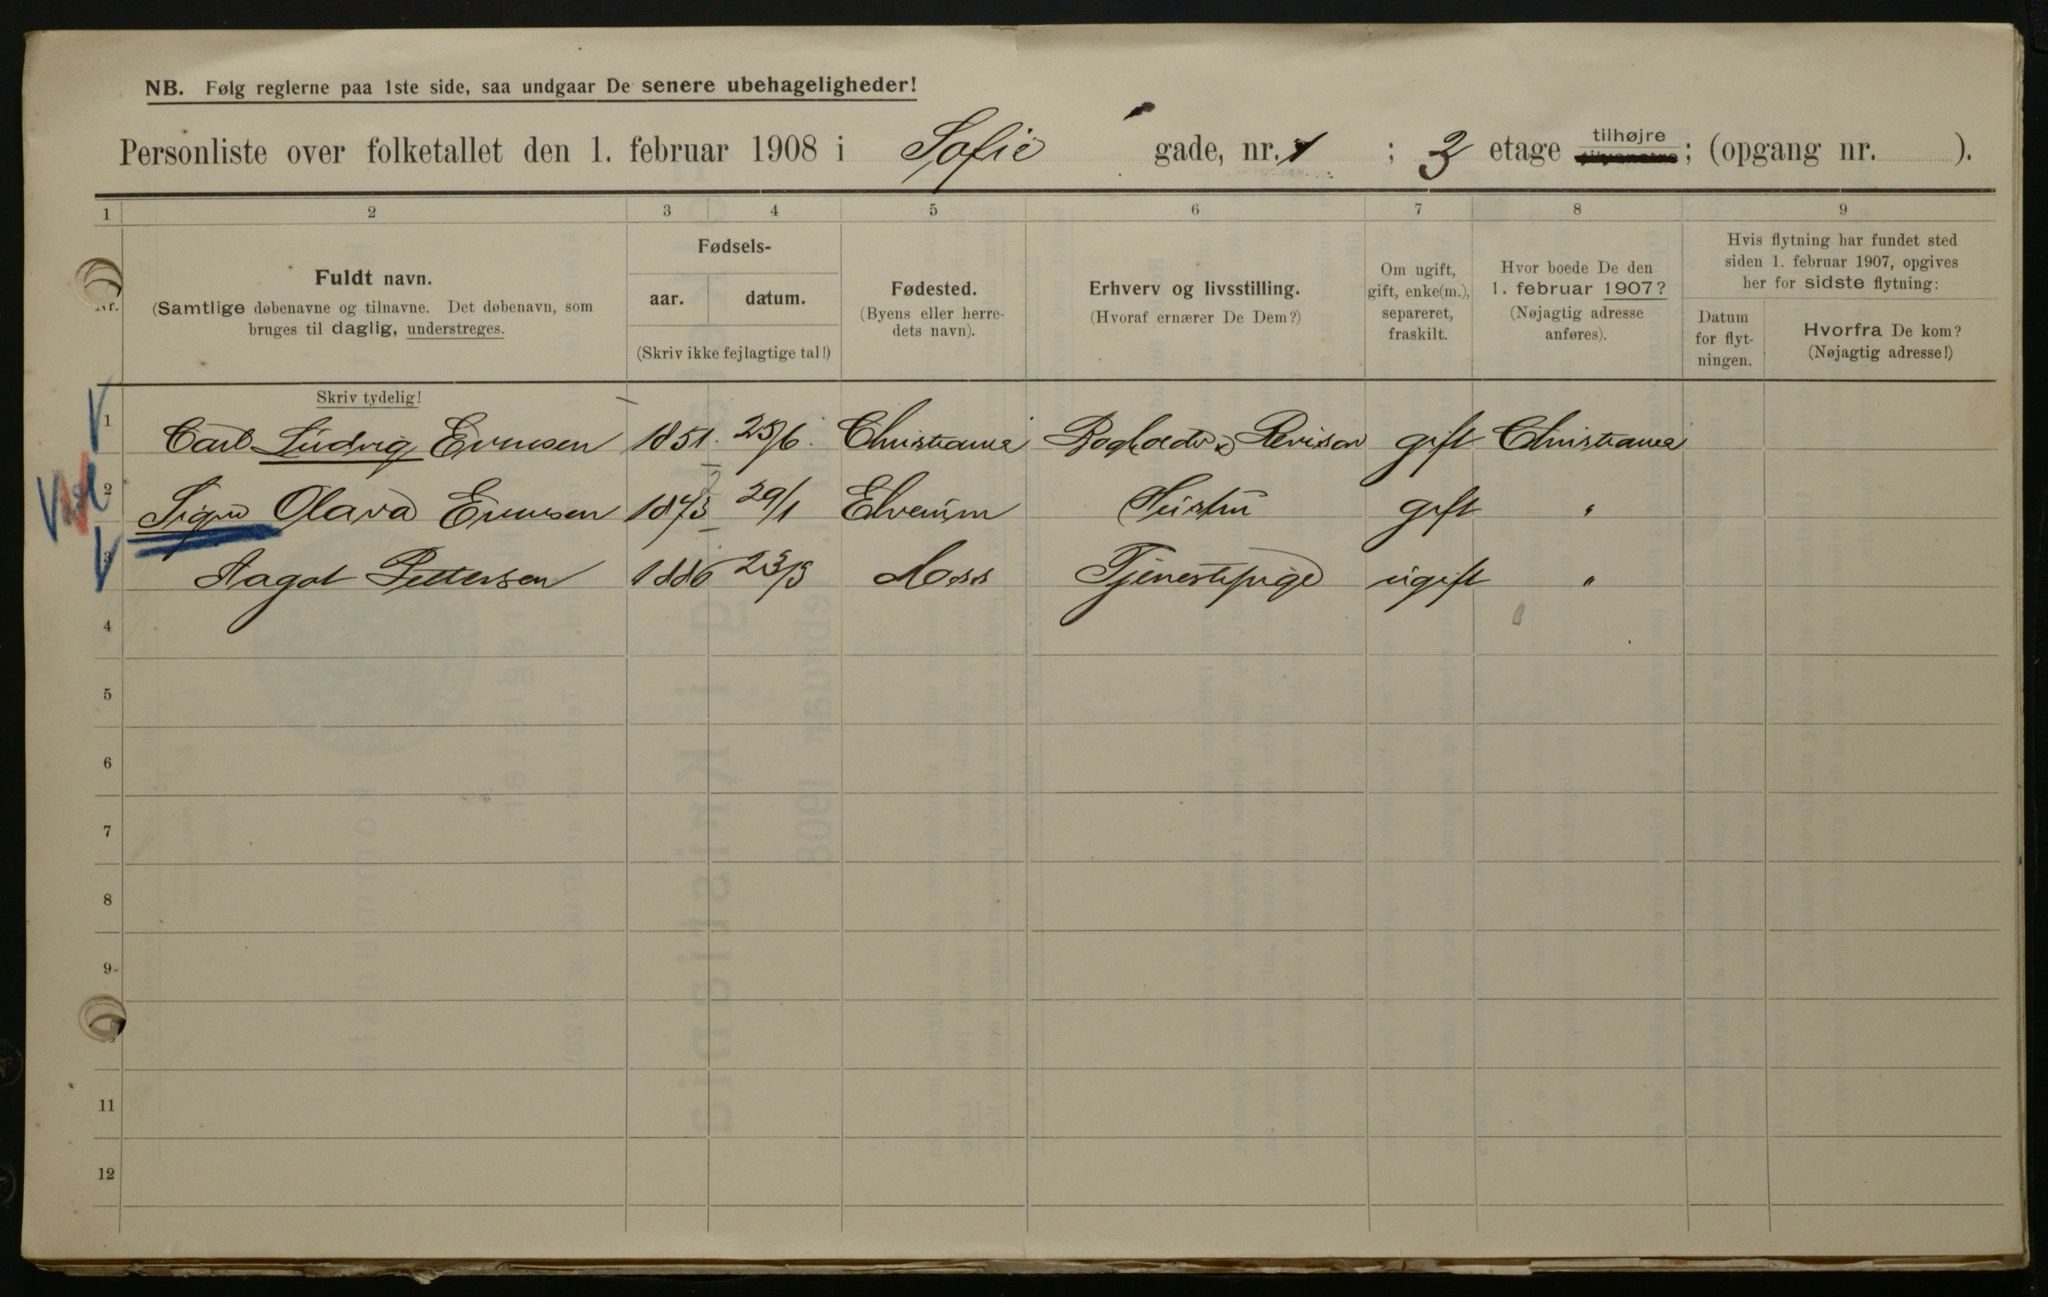 NB. Følg reglerne paa 1ste side, saa undgaar De senere ubehageligheder!
Personliste over folketallet den 1. februar 1908 i Sofie gade, nr. 1 ; 3 etage tilhøjre tilvenstre; (opgang nr. ).
1 2 3 4 5 6 7 8 9
Nr.
Fuldt navn.
(Samtlige døbenavne og tilnavne. Det døbenavn, som
bruges til daglig, understreges.
Skriv tydelig!
Fødsels-
aar. datum.
(Skriv ikke fejlagtige tal!)
Fødested.
(Byens eller herre-
dets navn).
Erhverv og livsstilling.
(Hvoraf ernærer De Dem?)
Om ugift,
gift, enke(m.),
separeret,
fraskilt.
Hvor boede De den
1. februar 1907?
(Nøjagtig adresse
anføres).
Hvis flytning har fundet sted
siden 1. februar 1907, opgives
her for sidste flytning:
Datum
for flyt-
ningen.
Hvorfra De kom?
(Nøjagtig adresse!)
1 Carl Ludvig Evensen 1851. 25/6. Christiania Bogholder & Revisor gift Christiania
2 Signe Olava Evensen 1873 29/1 Elverum Hustru gift "
3 Aagot Pettersen 1886 23/3 Moss Tjenestepige ugift "
4
5
6
7
8
9
11
12